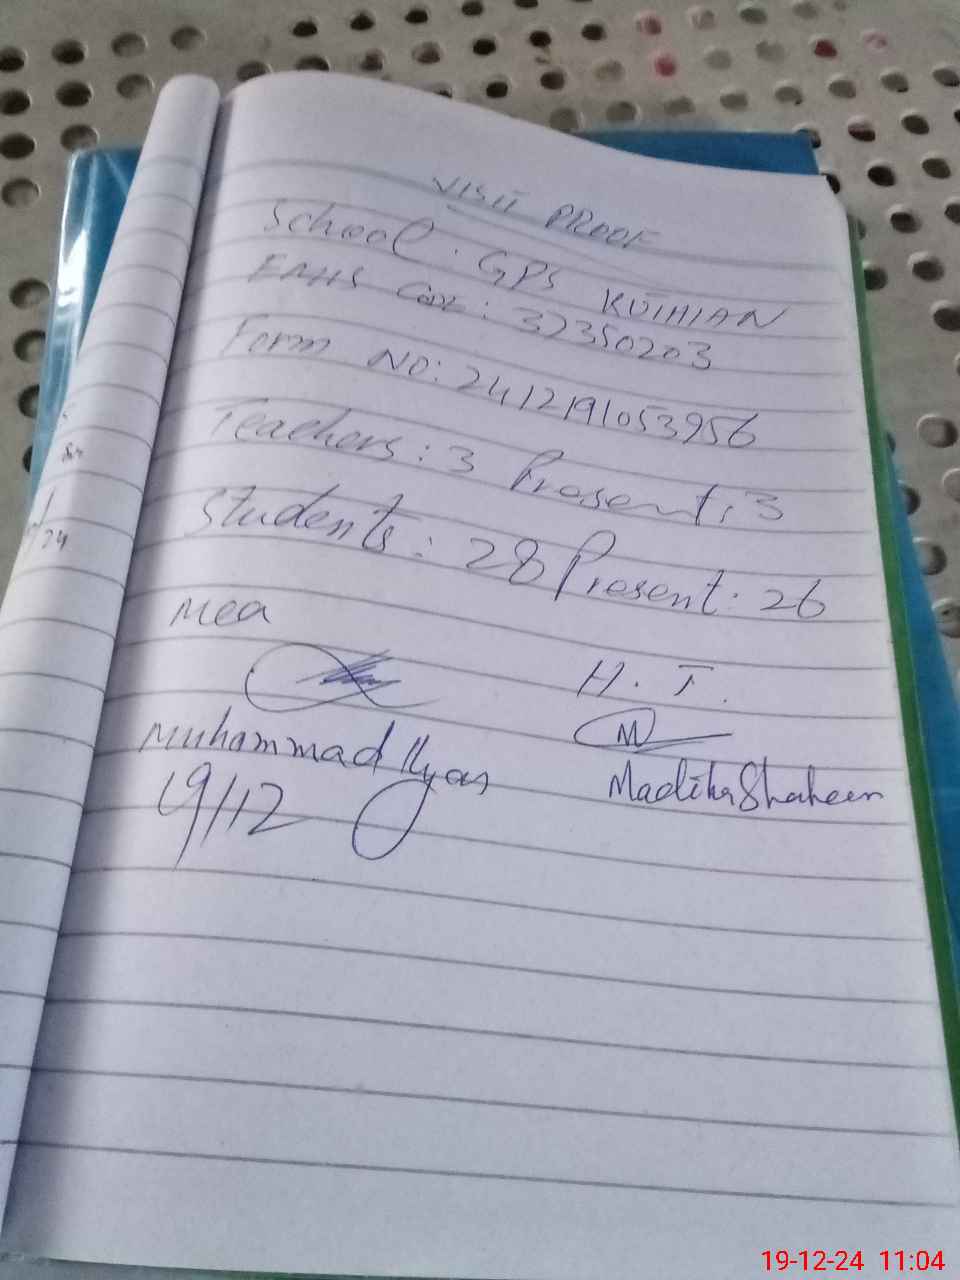 VISIT PROOF
School: GPS KUTHIAN
EMIS Code: 32350203
Form NO: 2412191053956
Teachers: 3 Present: 3
Students: 28 Present: 26
Mea
H. T.
Muhammad Ilyas
Madiha Shaheen
19/12
24
19-12-24 11:04